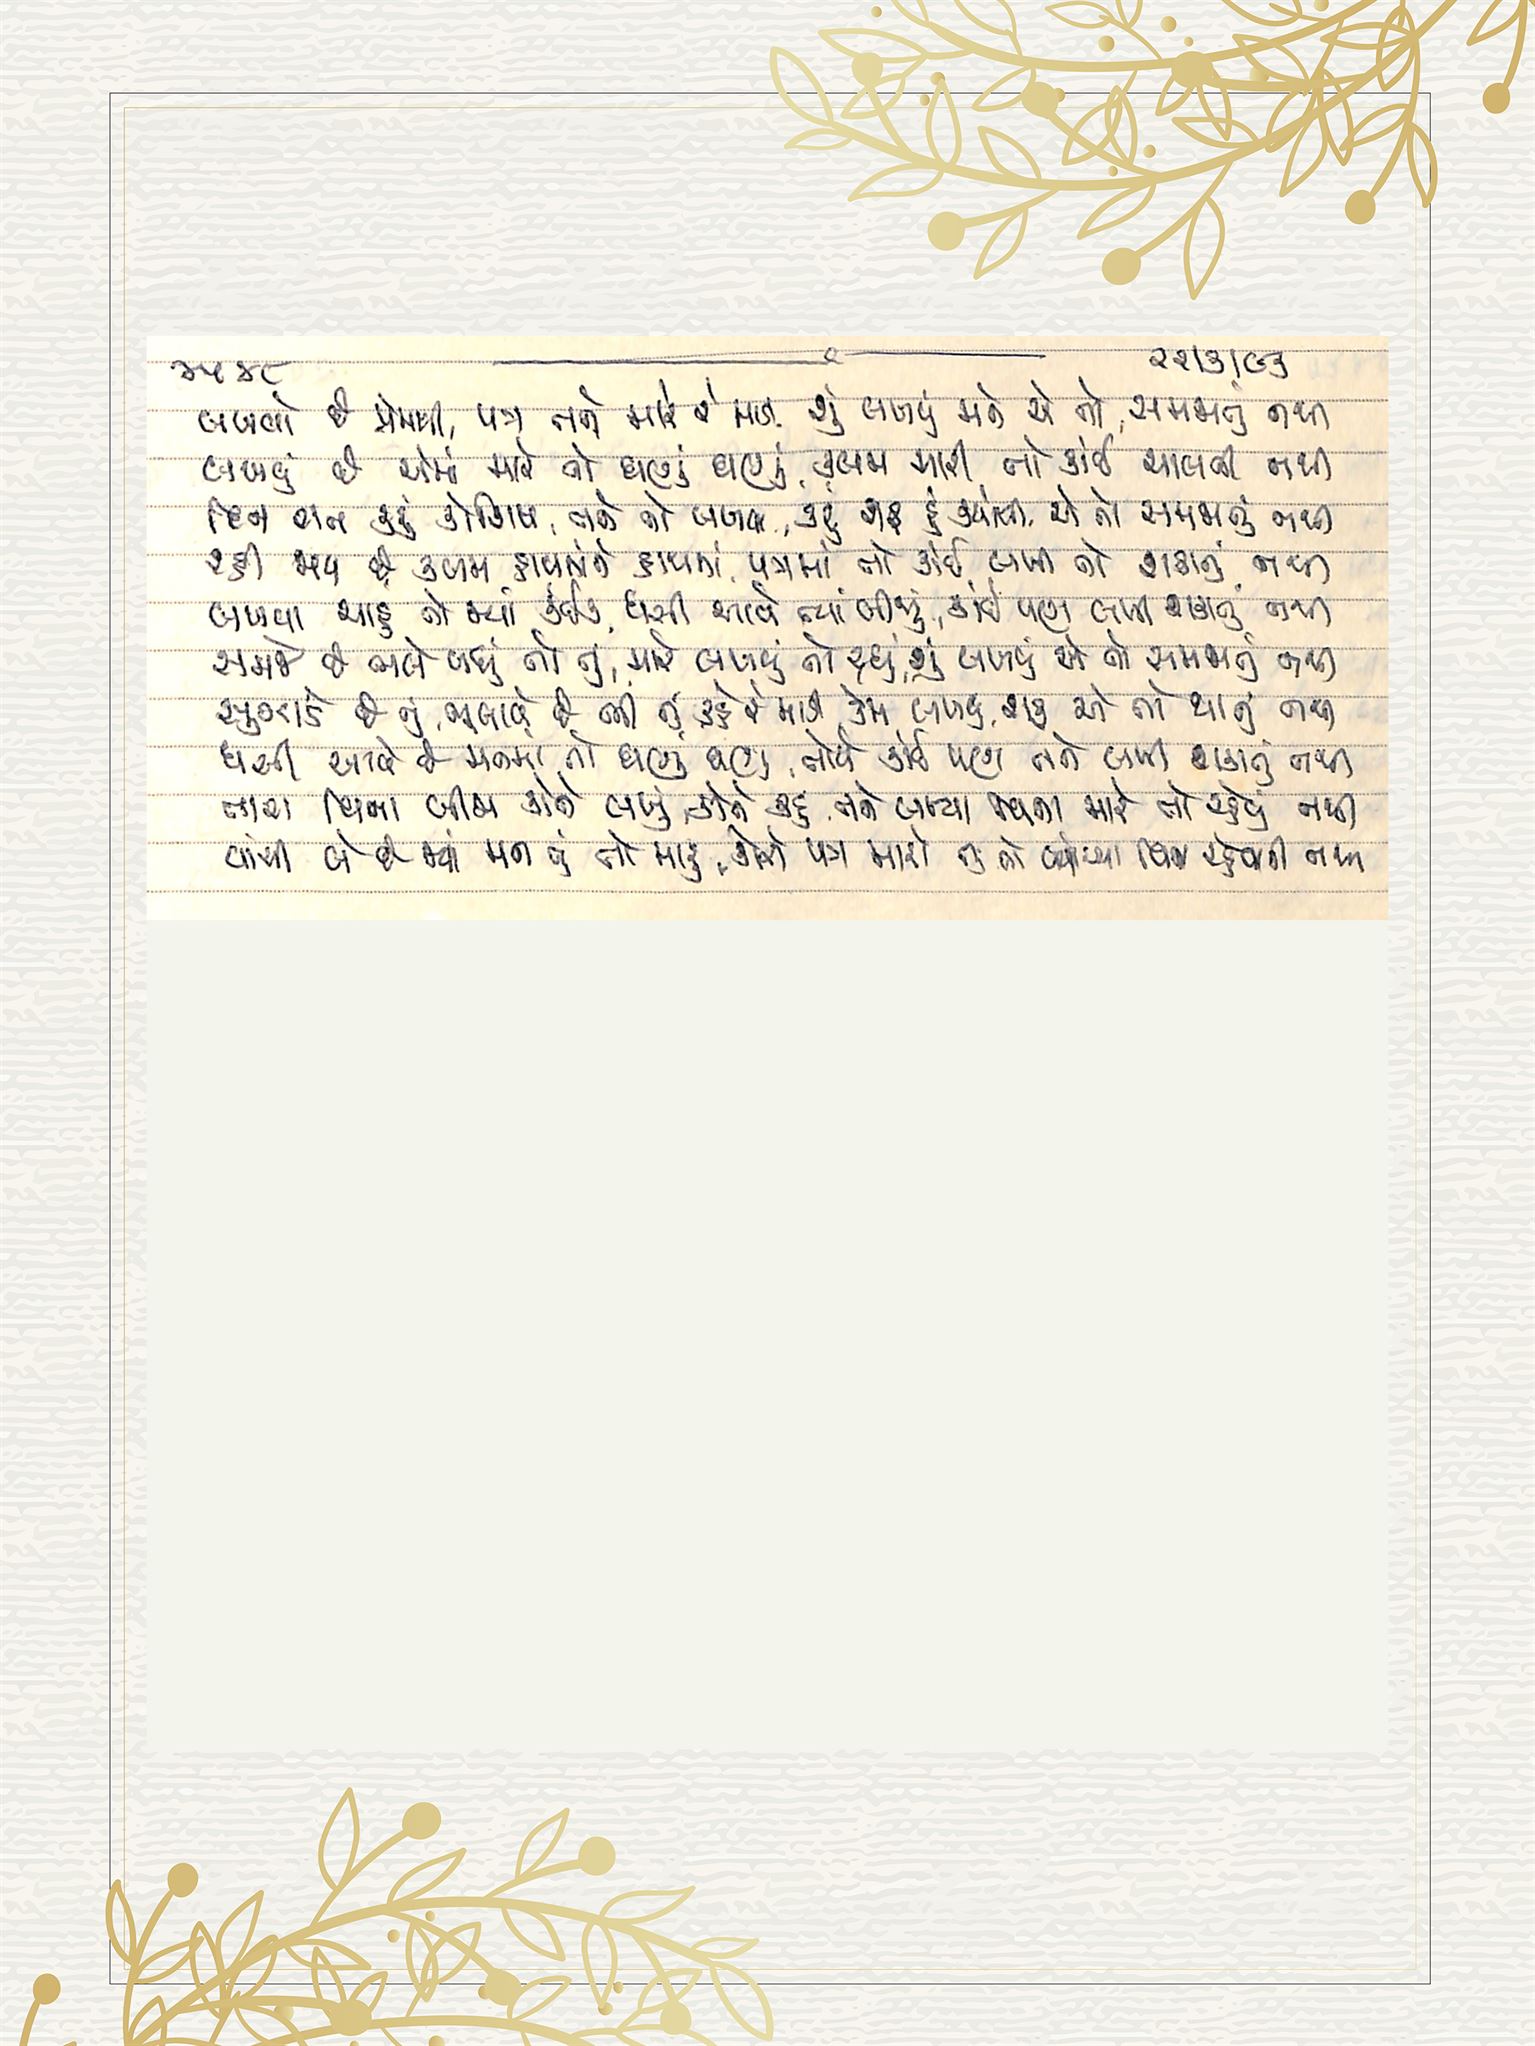 ૪૫૪૮ ૨૨/૩/૯૩
લખવો છે પ્રેમથી, પત્ર તને મારે રે માતા. શું લખવું મને એ તો, સમજાતું નથી
લખવું છે એમાં મારે તો ઘણું ઘણું, કલમ મારી તો કાંઈ ચાલતી નથી
દિન રાત કરું કોશિશ, તને તો લખવા, કરું શરૂ હું ક્યાંથી, એ તો સમજાતું નથી
રહી જાય છે કલમ હાથમાંને હાથમાં, પત્રમાં તો કાંઈ લખી તો શકાતું નથી
લખવા ચાહું તો જ્યાં કંઈક, ધસી આવે ત્યાં બીજું, કાંઈ પણ લખી શકાતું નથી
સમજે છે ભલે બધું તો તું, મારે લખવું તો રહ્યું, શું લખવું એ તો સમજાતું નથી
સુઝાડે છે તું, ભુલાવે છે ભી તું, કહે રે માતા, કેમ લખવું, શરૂ એ તો થાતું નથી
ધસી આવે છે મનમાં તો ઘણું ઘણું, તોયે કાંઈ પણ તને લખી શકાતું નથી
તારા વિના બીજા કોને લખું, કોને કહું, તને લખ્યા વિના મારે તો રહેવું નથી
વાંચી લે છે જ્યાં મન તું તો મારું, કોરો પત્ર મારો તું તો વાંચ્યા વિના રહેવાની નથી